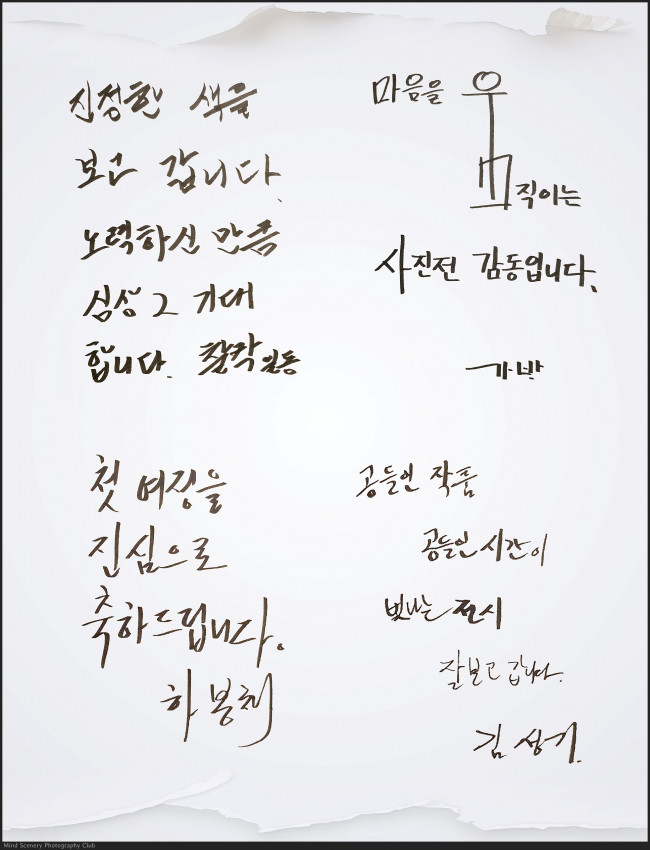 진정한 색을
보고 갑니다.
노력하신 만큼
기대
합니다. 찰칵일동
마음을 움
직이는
사진전 감동입니다.
가바
첫 여정을
진심으로
축하드립니다.
하봉채
공들인 작품
공들인 시간이
빛나는 전시
잘보고 갑니다.
김성기.
Mind Scenery Photography Club